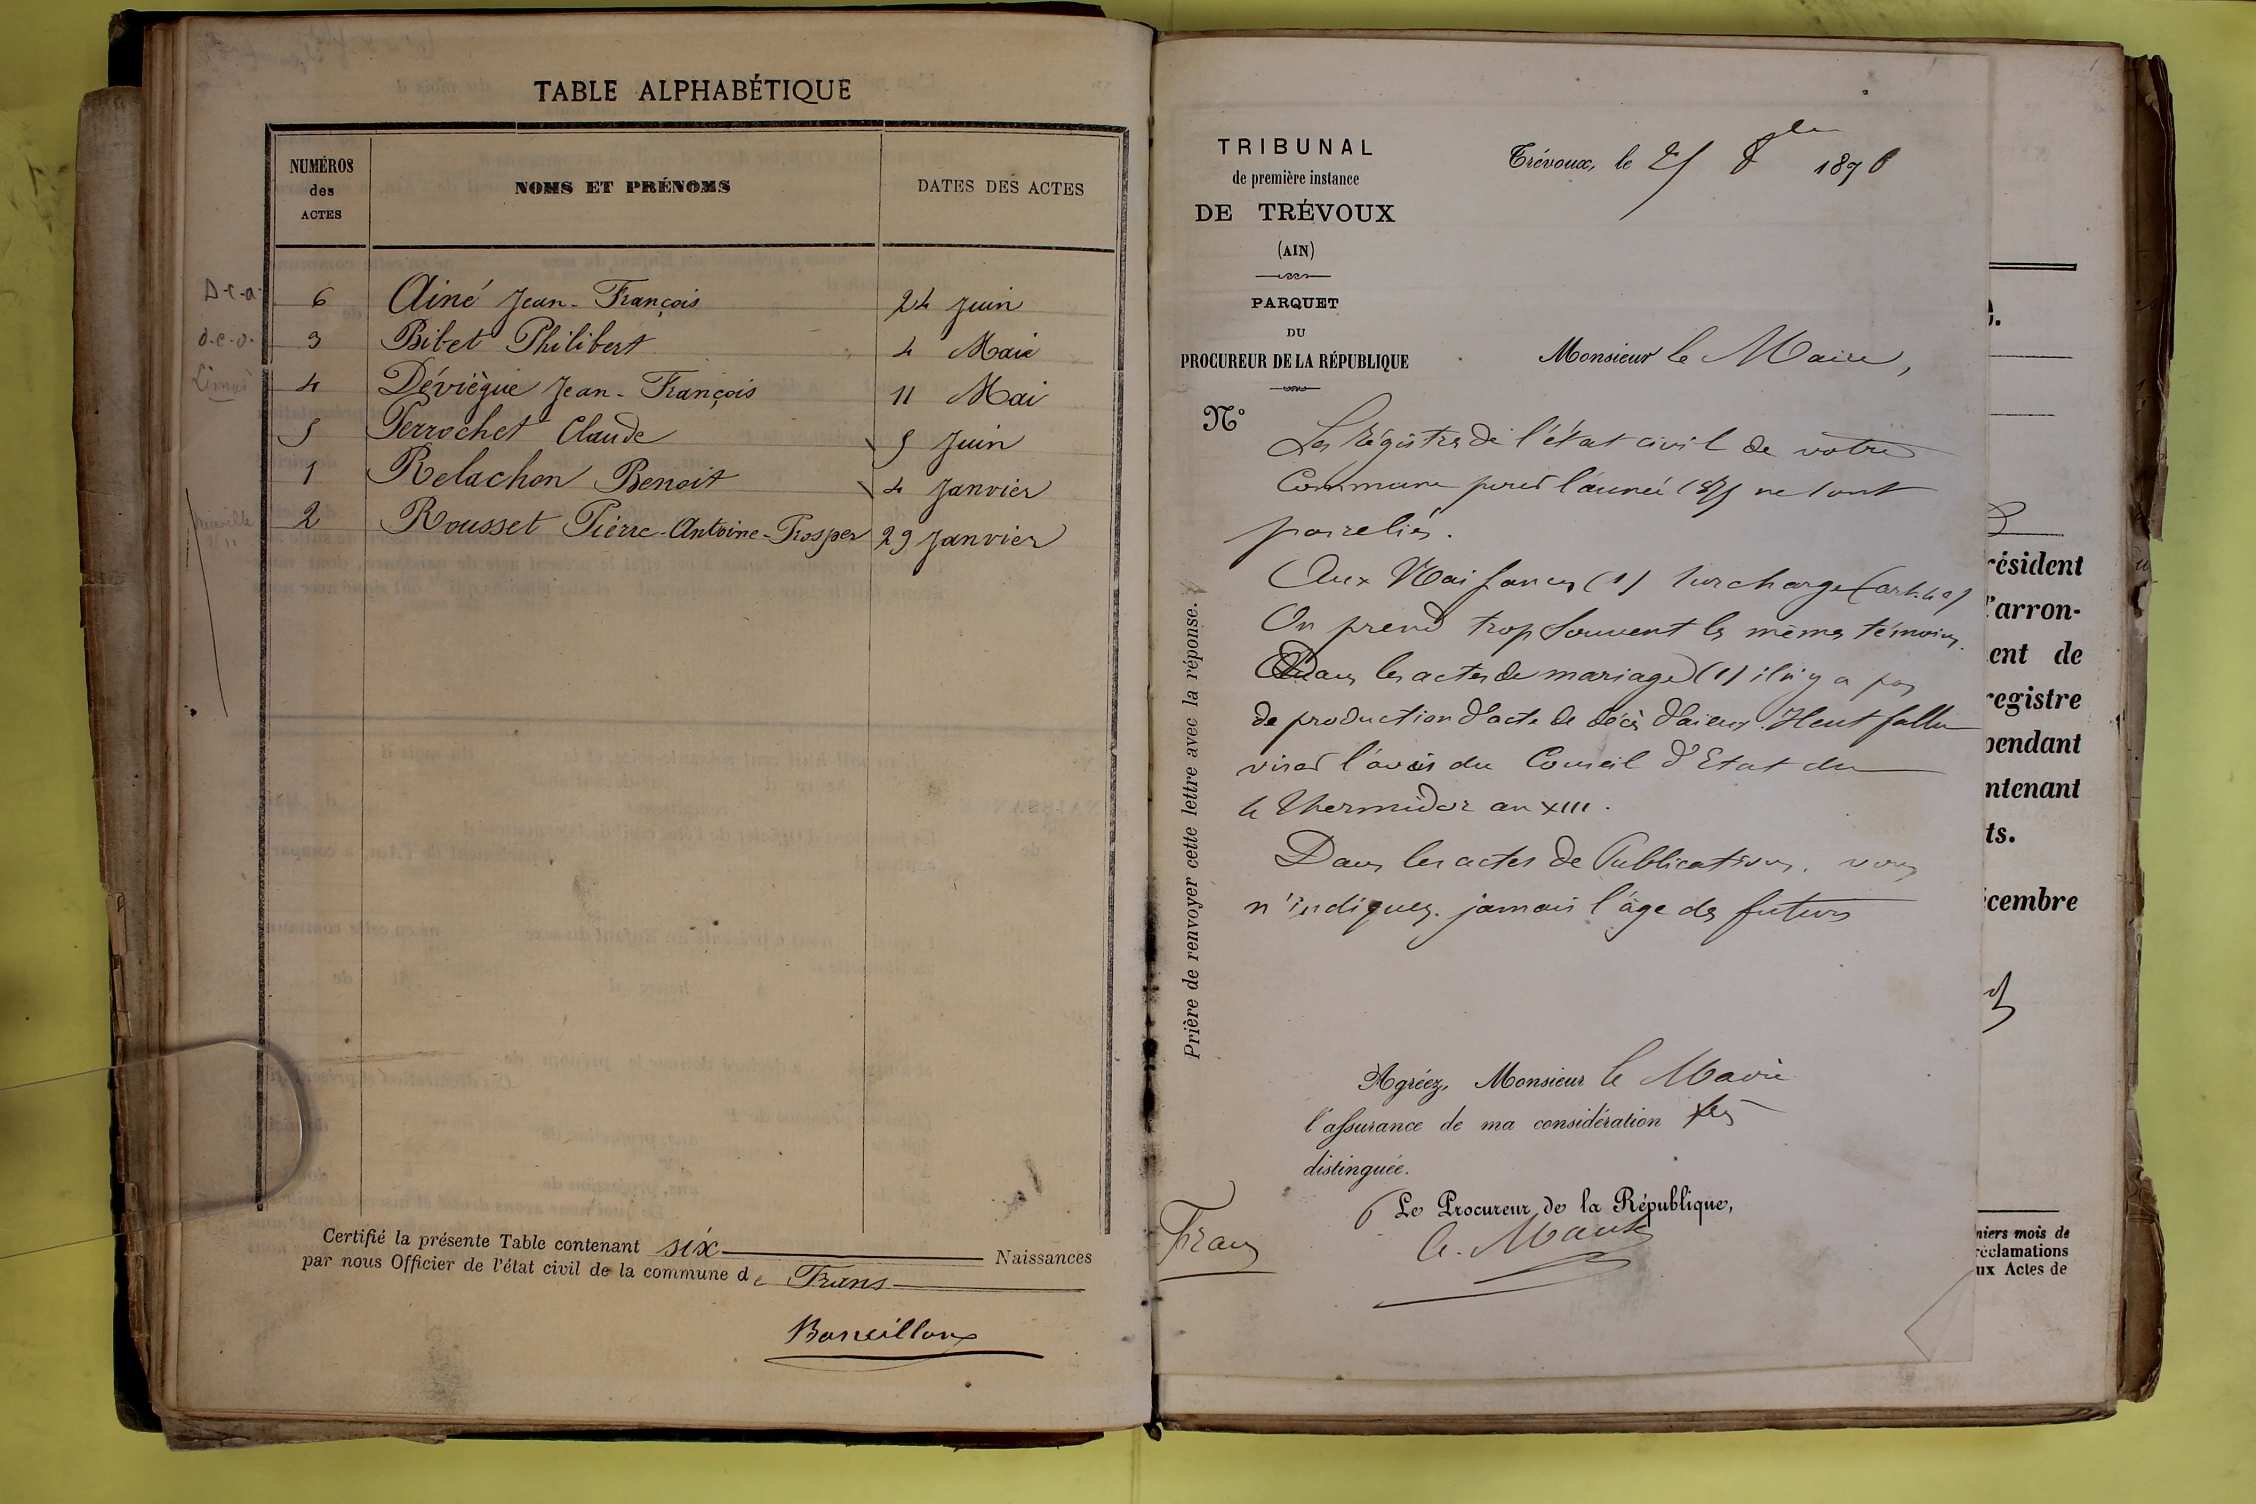 TABLE ALPHABÉTIQUE
NUMÉROS des ACTES NOMS ET PRÉNOMS DATES DES ACTES
D-c-a- 6 Ainé Jean-François 24 Juin
d-c-d- 3 Bibet Philibert 4 Mai
4 Dévièque Jean-François 11 Mai
5 Perrochet Claude 5 Juin
1 Relachon Benoit 4 Janvier
2 Rousset Pierre-Antoine-Prosper 29 Janvier
Certifié la présente Table contenant six Naissances
par nous Officier de l'état civil de la commune de Frans
TRIBUNAL
de première instance
DE TRÉVOUX
(AIN)
PARQUET
DU
PROCUREUR DE LA RÉPUBLIQUE
N°
Prière de renvoyer cette lettre avec la réponse.
Trévoux, le 25 8bre 1896
Monsieur le Maire,
Les Régistres de l'état civil de votre
Commune pour l'année 1895 ne sont
pas reliés.
Aux Naissances (1) surcharge (art.
On prend trop souvent les mêmes témoins.
Dans les actes de mariage (1) il n'y a pas
de production d'acte de décès d'aieux. Il eut fallu
viser l'avis du Conseil d'Etat du
4 Thermidor an XIII.
Dans les actes de Publications, vous
n'indiquez jamais l'âge des futurs
Agréez, Monsieur le Maire
l'assurance de ma considération très
distinguée.
Le Procureur de la République,
Frans
résident
l'arron-
ent de
registre
pendant
ntenant
ts.
écembre
niers mois de
réclamations
ux Actes de